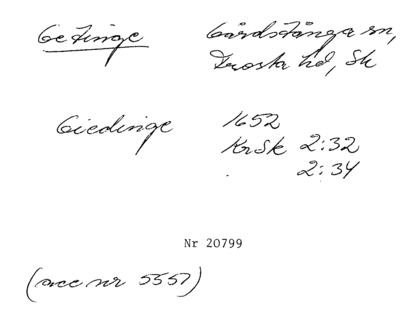 Getinge Gårdstånga sn,
Frosta hd, Sk
Giedinge 1652
KrSk 2:32
2:34
Nr 20799
(acc nr 5557)